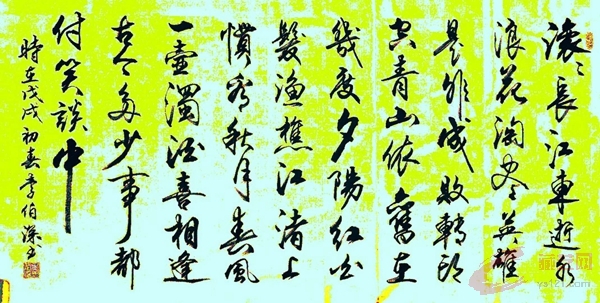 滚〻長江東逝水
浪花淘尽英雄
是非成敗轉頭
空青山依舊在
幾度夕陽紅白
髮漁樵江渚上
慣看秋月春風
一壺濁酒喜相逢
古今多少事都
付笑談中
時在戊戌初春李伯深书
ys121.com